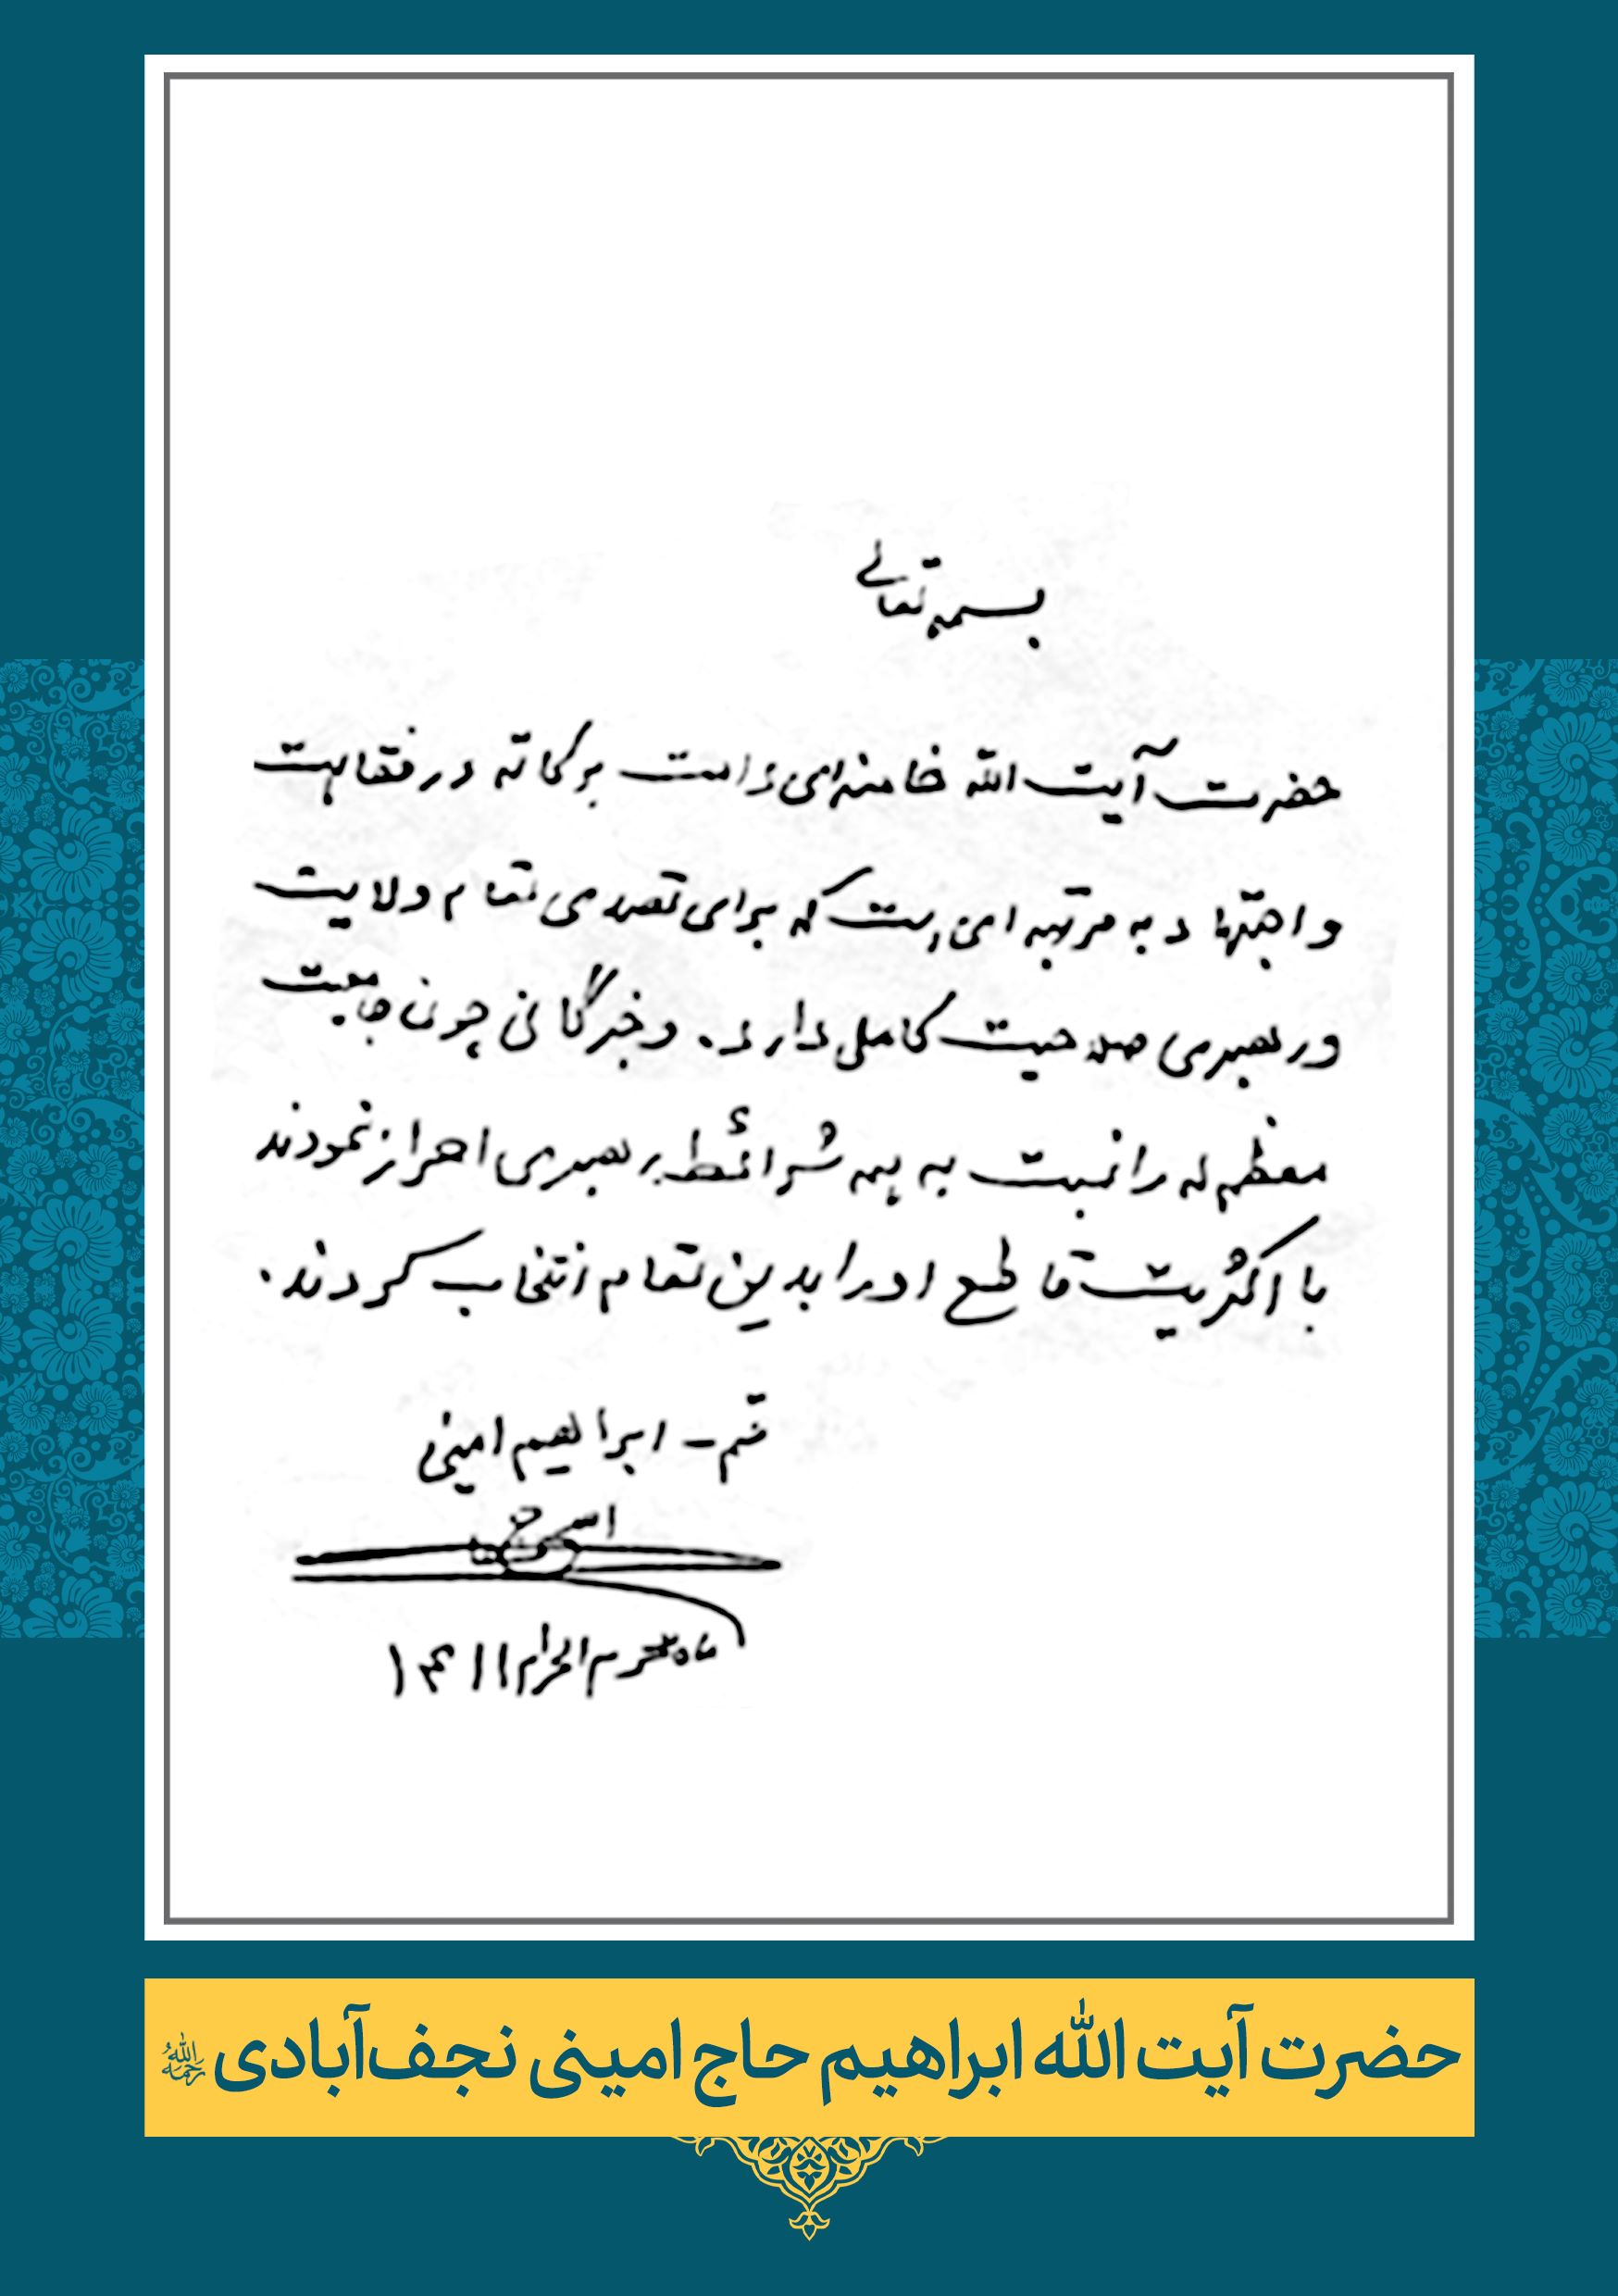 بسمه تعالی
حضرت آیت الله خامنه‌ای دامت برکاته در فقاهت
و اجتهاد به مرتبه‌ای است که برای تصدی مقام ولایت
و رهبری صلاحیت کاملی دارد. و خبرگانی چون جامعیت
معظم له را نسبت به همه شرائط رهبری احراز نمودند
با اکثریت قاطع او را بدین مقام انتخاب کردند.
قم - ابراهیم امینی
ماه محرم الحرام ۱۴۱۱
حضرت آیت الله ابراهیم حاج امینی نجف‌آبادی رحمه الله